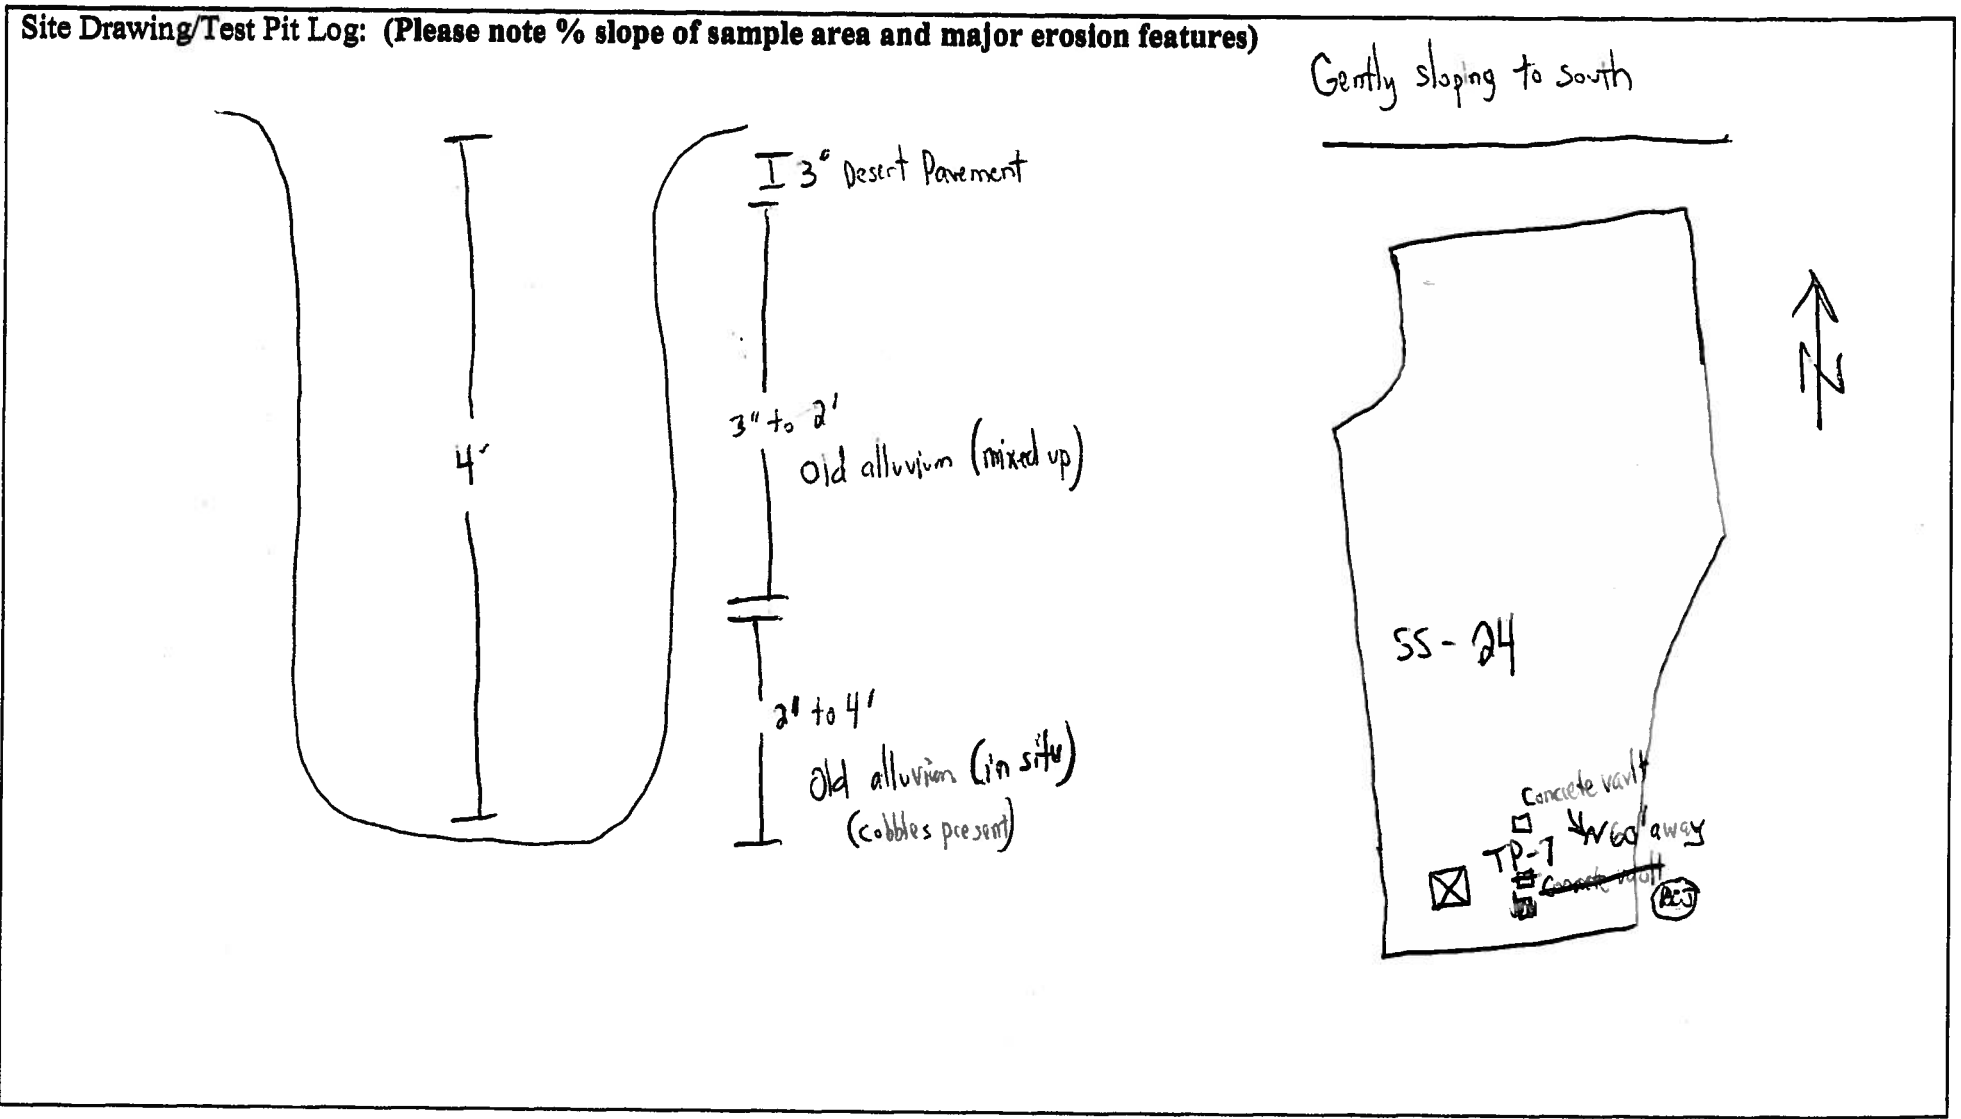 Site Drawing/Test Pit Log: (Please note % slope of sample area and major erosion features)
Gently sloping to south
3" Desert Pavement
3" to 2'
Old alluvium (mixed up)
4'
2' to 4'
Old alluvium (in situ)
(cobbles present)
N
SS-24
Concrete vault
~60' away
TP-7
Concrete vault